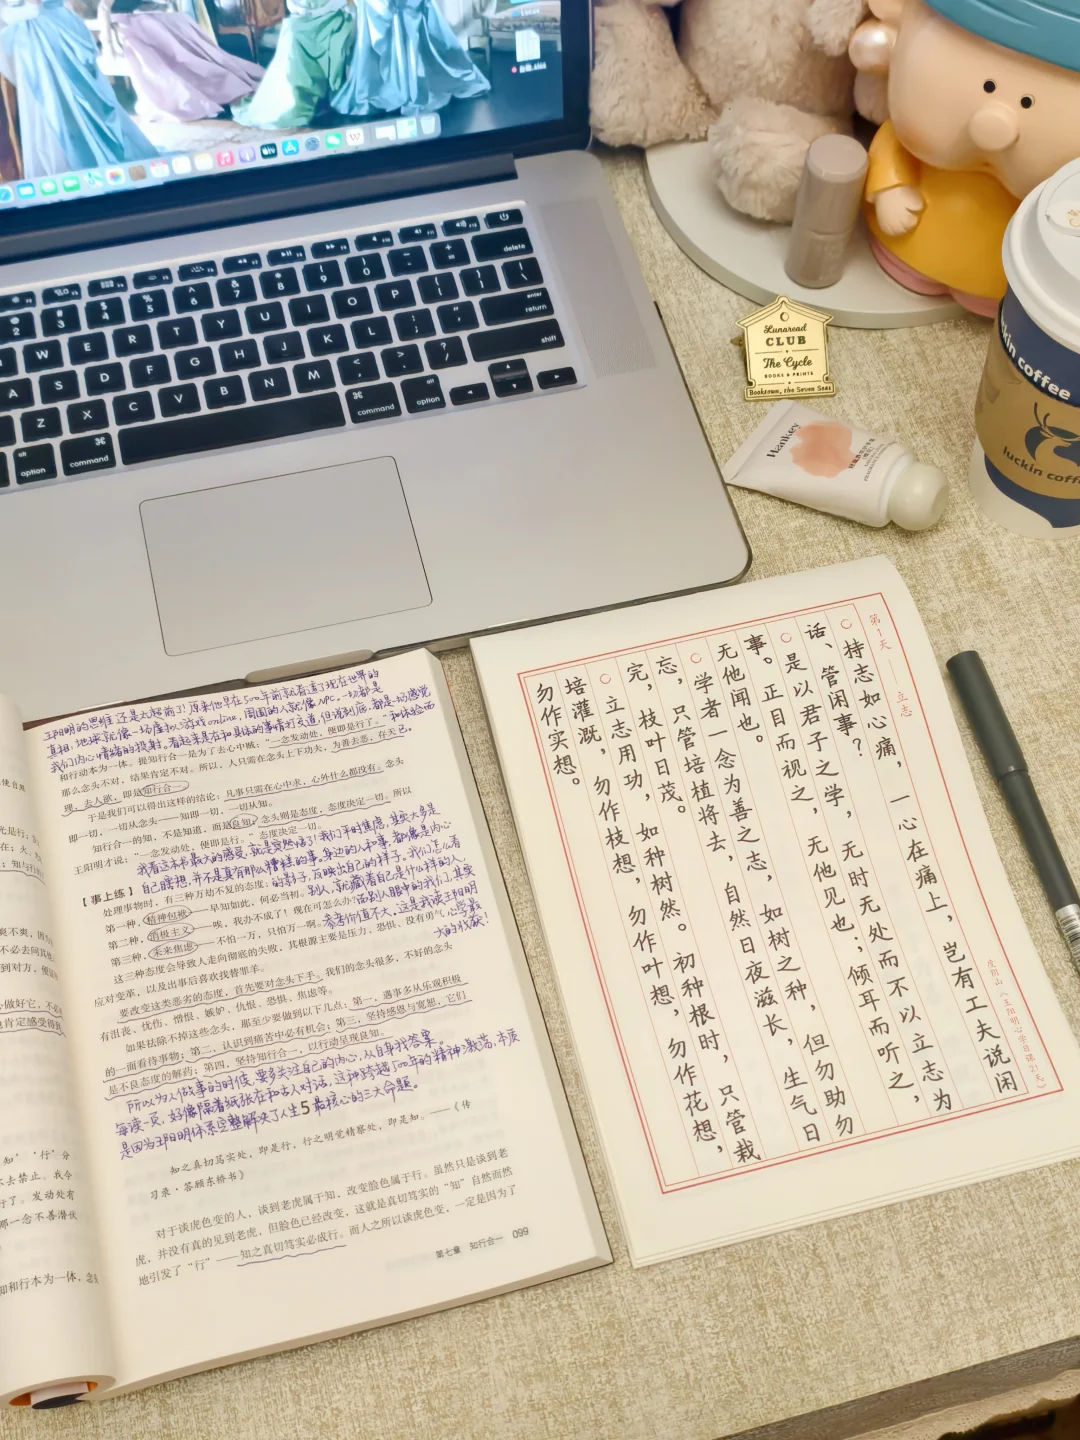 Lunaread
CLUB
The Cycle
BOOKS & PRINTS
Booktown, the Seven Seas
Hankey
luckin coffee
luckin coffee
delete
enter
return
shift
command
option
option
command
王阳明的思维还是太超前了！原来他早在500年前就看透了现在世界的
真相，地球就像一场虚拟游戏online，周围的人就像NPC。一切都是
我们内心情绪的投射。看起来是在和具体的事情打交道，但说到底，都是一场感觉
和体验而已。
和行动本为一体。提知行合一是为了去心中贼：“一念发动处，便即是行了。”
那么念头不对，结果肯定不对。所以，人只需在念头上下功夫，为善去恶，存天
理，去人欲，即是知行合一。
于是我们可以得出这样的结论：凡事只需在心中求，心外什么都没有。念头
即一切，一切从念头——知即一切，一切从知。
知行合一的知，不是知道，而是良知；念头则是态度，态度决定一切。所以
王阳明才说：“一念发动处，便即是行。”态度决定一切。
我看这本书最大的感受，就是突然悟了！我们平时焦虑，其实大多是
自己瞎想，并不是真有那么糟糕的事，身边的人和事，都像是内心
的影子，反映出自己的样子。我们怎么看
别人，就藏着自己是什么样的人，
而别人眼中的我们，其实
参考价值不大，这是我读王阳明
心学最
大的收获！
【事上练】
处理事物时，有三种万劫不复的态度：
第一种，精神包袱——早知如此，何必当初。
第二种，消极主义——唉，我办不成了！现在可怎么办
第三种，未来焦虑——不怕一万，只怕万一啊。
这三种态度会导致人走向彻底的失败，其根源主要是压力、恐惧、没有勇气
应对变革，以及出事后喜欢找替罪羊。
要改变这类恶劣的态度，首先要对念头下手。我们的念头很多，不好的念头
有沮丧、忧伤、憎恨、嫉妒、仇恨、恐惧、焦虑等。
如果祛除不掉这些念头，那至少要做到以下几点：第一，遇事多从乐观积极
的一面看待事物；第二，认识到痛苦中必有机会；第三，坚持感恩与宽恕，它们
是不良态度的解药；第四，坚持知行合一，以行动呈现良知。
所以为人做事的时候，要多关注自己的内心，从自身找答案。
每读一页，好像隔着纸张在和古人对话，这种跨越500年的精神激荡，本质
是因为王阳明体系完整解决了人生5最核心的三大命题。
知之真切笃实处，即是行，行之明觉精察处，即是知。——《传
习录·答顾东桥书》
对于谈虎色变的人，谈到老虎属于知，改变脸色属于行。虽然只是谈到老
虎，并没有真的见到老虎，但脸色已经改变，这就是真切笃实的“知”自然而然
地引发了“行”——知之真切笃实必成行。而人之所以谈虎色变，一定是因为了
第七章 知行合一 099
第1天 立志
持志如心痛，一心在痛上，岂有工夫说闲
话、管闲事？
是以君子之学，无时无处而不以立志为
事。正目而视之，无他见也；倾耳而听之，
无他闻也。
学者一念为善之志，如树之种，但勿助勿
忘，只管培植将去，自然日夜滋长，生气日
完，枝叶日茂。
立志用功，如种树然。初种根时，只管栽
培灌溉，勿作枝想，勿作叶想，勿作花想，
勿作实想。
度阴山《王阳明心学自课21天》